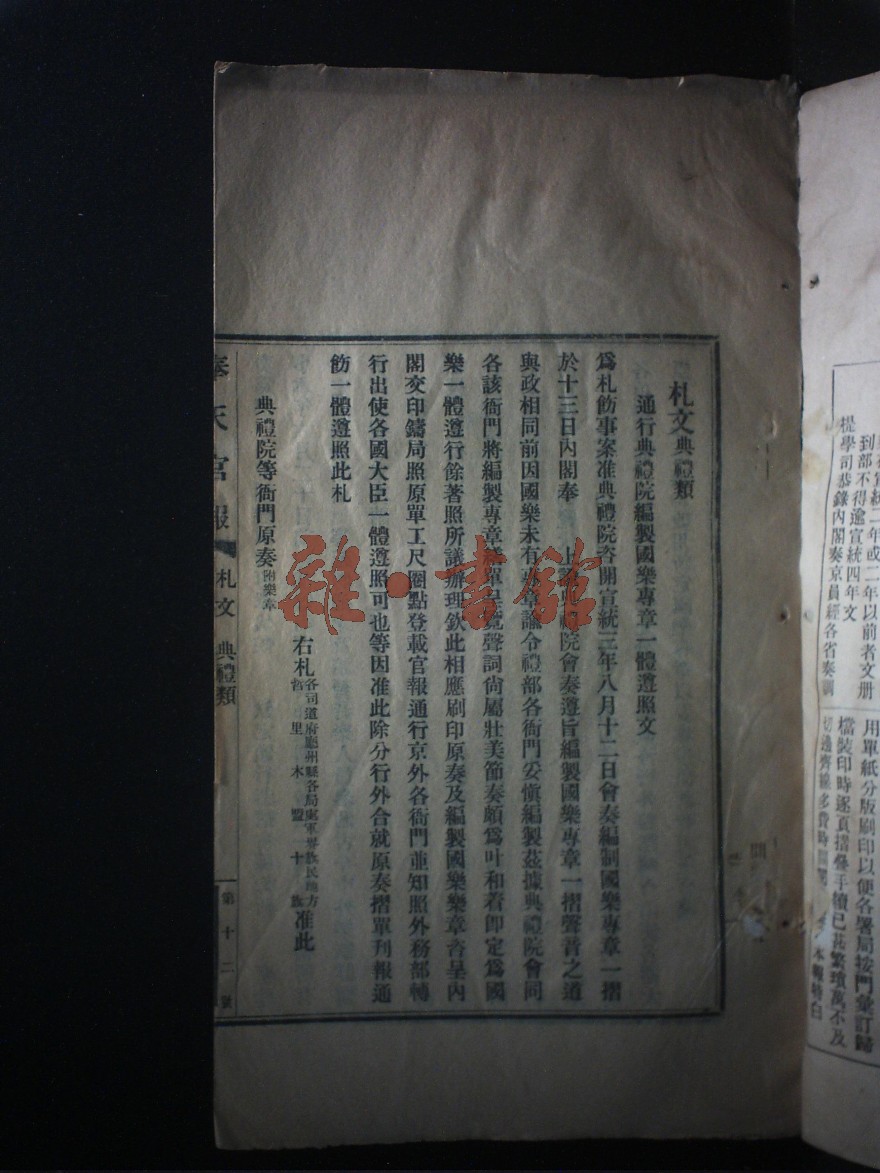 札文典禮類
通行典禮院編製國樂專章一體遵照文
爲札飭事案准典禮院咨開宣統三年八月十二日會奏編制國樂專章一摺
於十三日內閣奉 上諭典禮院會奏遵旨編製國樂專章一摺聲音之道
與政相同前因國樂未有專章諭令禮部各衙門妥愼編製茲據典禮院會同
各該衙門將編製專章繕單呈覽聲詞尙屬壯美節奏頗爲叶和着卽定爲國
樂一體遵行餘著照所議辦理欽此相應刷印原奏及編製國樂樂章咨呈內
閣交印鑄局照原單工尺圈點登載官報通行京外各衙門並知照外務部轉
行出使各國大臣一體遵照可也等因准此除分行外合就原奏摺單刊報通
飭一體遵照此札
右札各司道府廳州縣各局處軍督旗民地方哲里木盟十旗准此
典禮院等衙門原奏附樂章
奉天官報 札文 典禮類 第十二號
到部不得逾宣統四年文
提學司恭錄內閣奏京員經各省奏調
用單紙分版刷印以便各署局按門彙訂歸
檔裝印時逐頁摺疊手續已甚繁瑣萬不及
切邊齊縫多費時間 本報特白
雜·書館